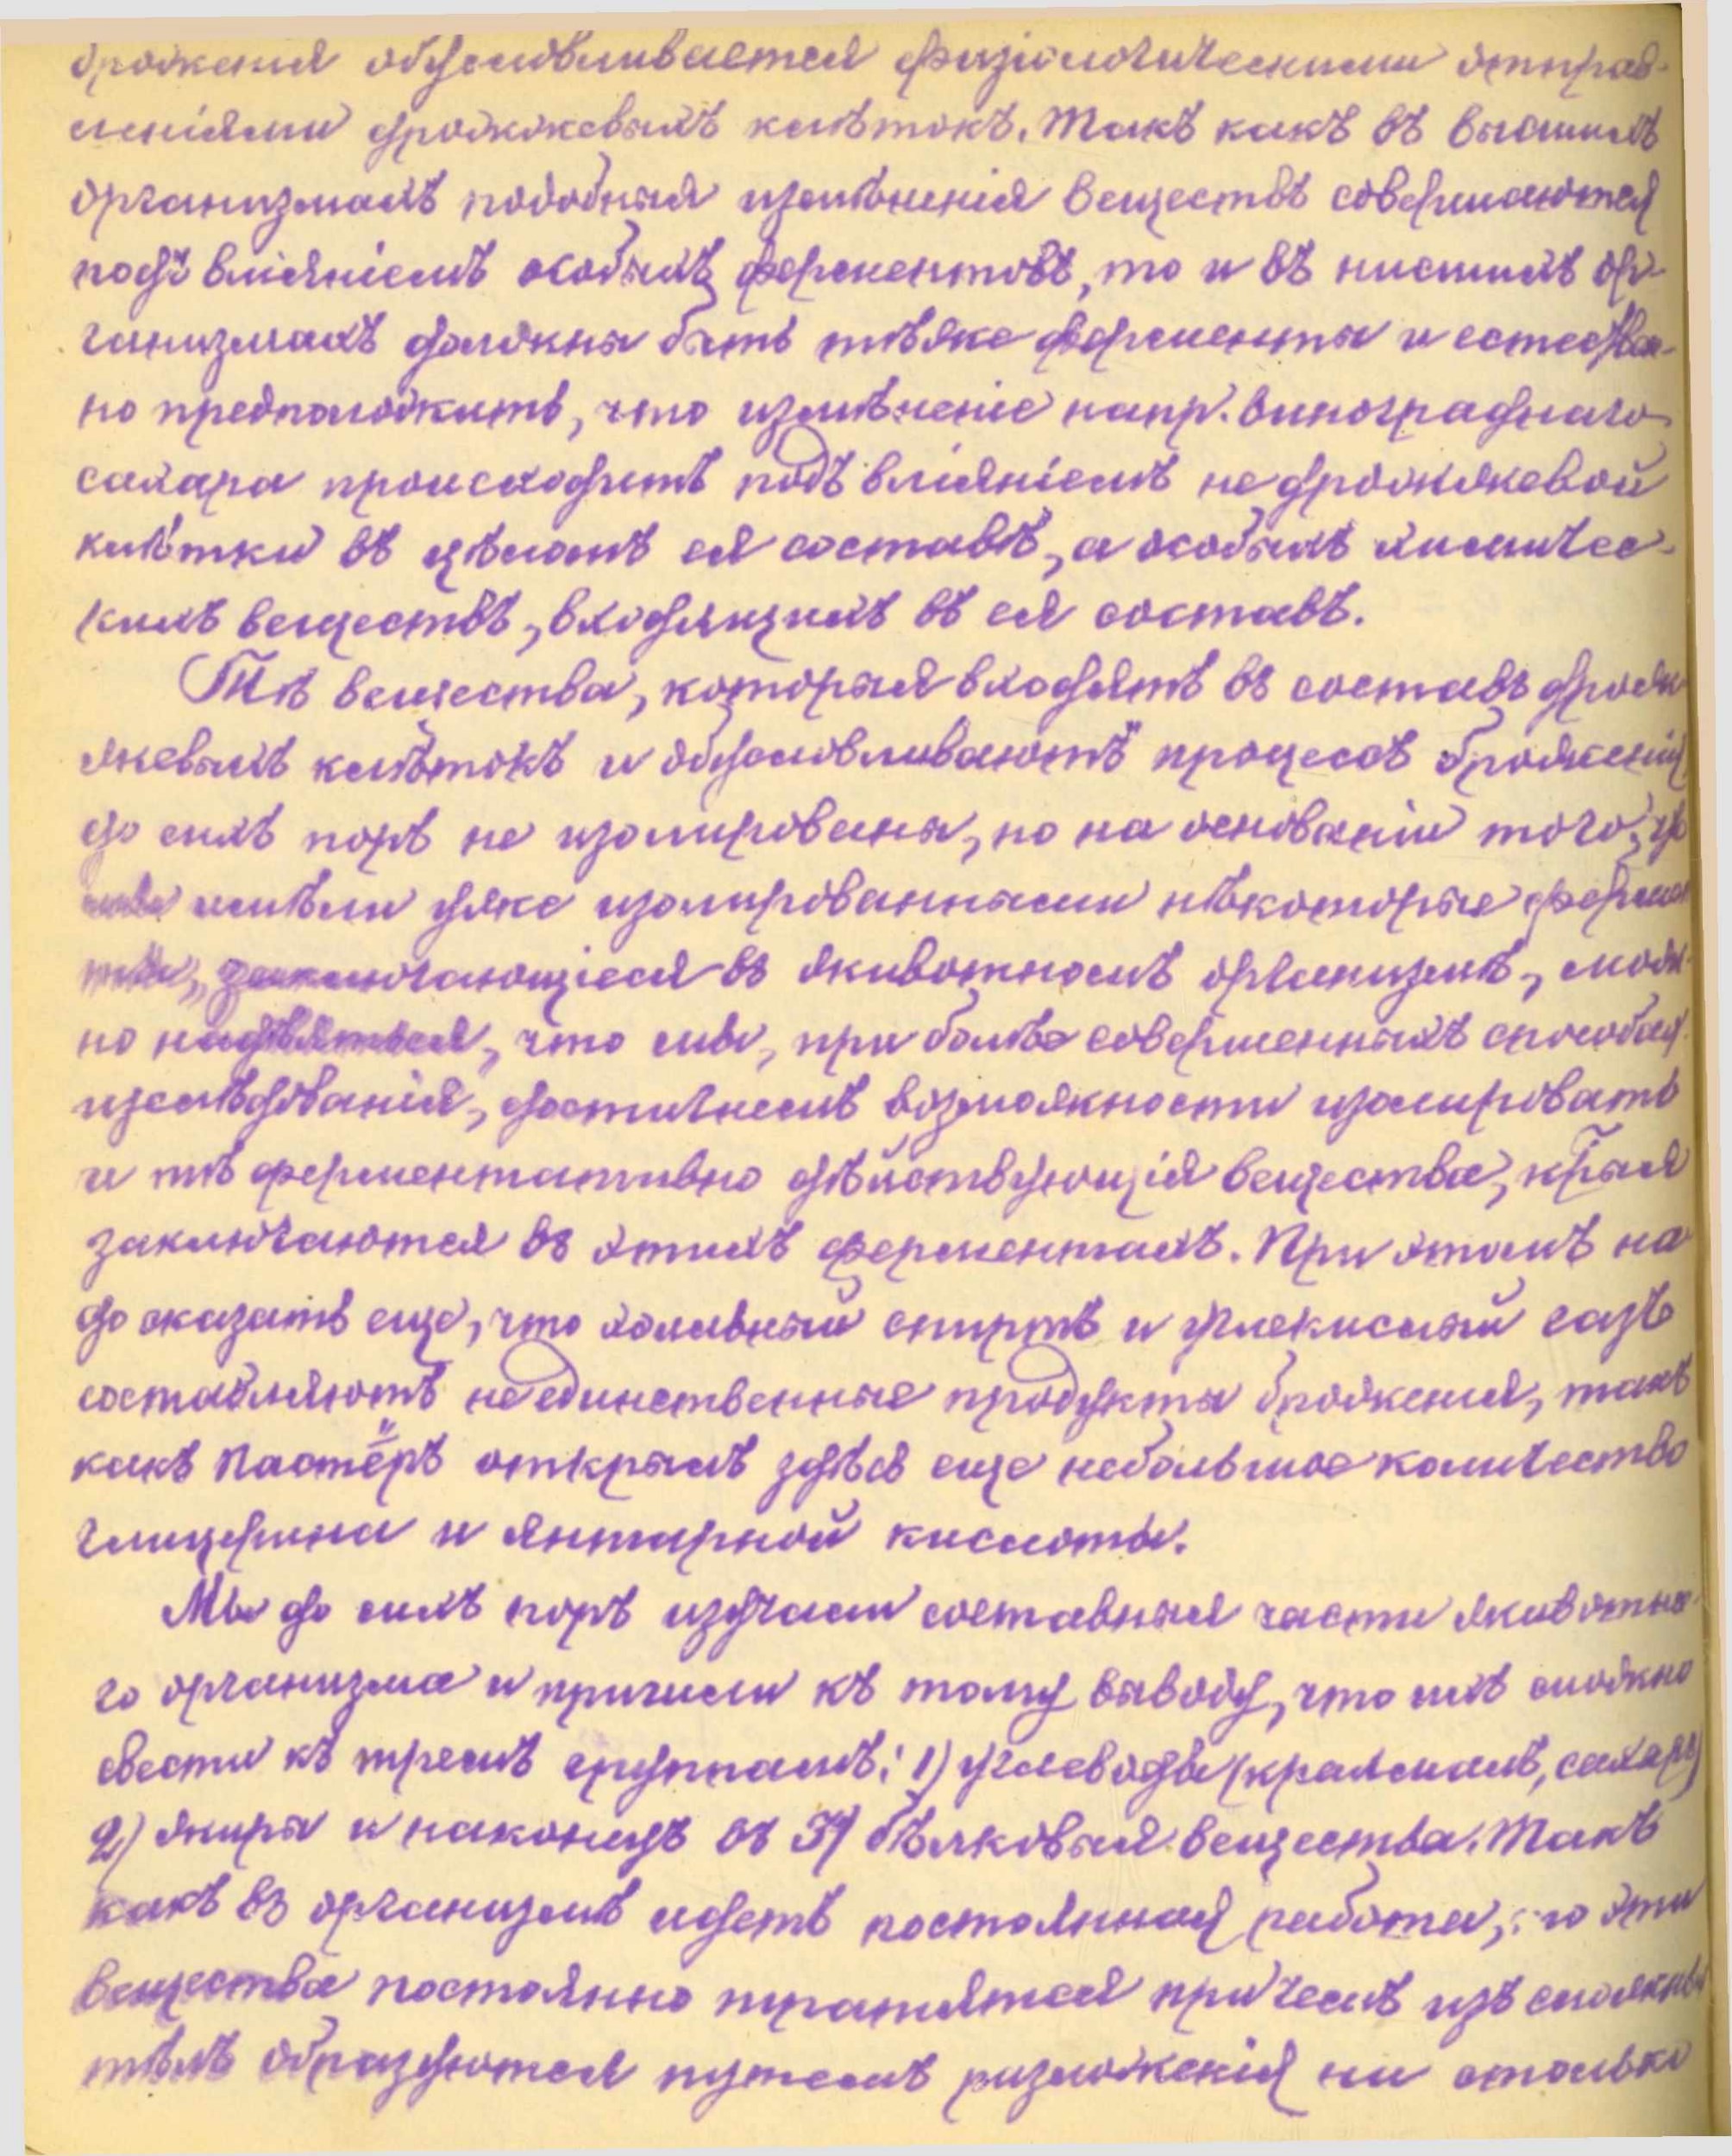 броженія обусловливается физіологическими отправ-
леніями дрожжевыхъ клѣтокъ. Такъ какъ въ высшихъ
организмахъ подобныя измѣненія веществъ совершаются
подъ вліяніемъ особыхъ ферментовъ, то и въ нисшихъ ор-
ганизмахъ должны быть тѣ же ферменты и естествен-
но предположить, что измѣненіе напр. винограднаго
сахара происходитъ подъ вліяніемъ не дрожжевой
клѣтки въ цѣломъ ея составѣ, а особыхъ химичес-
кихъ веществъ, входящихъ въ ея составъ.
Тѣ вещества, которыя входятъ въ составъ дрож-
жевыхъ клѣтокъ и обусловливаютъ процессъ броженія
до сихъ поръ не изолированы, но на основаніи того, что
мы имѣли уже изолированными нѣкоторые фермен
ты, заключающіеся въ животномъ организмѣ, мож-
но надѣяться, что мы, при болѣе совершенныхъ способах
изслѣдованія, достигнемъ возможности изолировать
и тѣ ферментативно дѣйствующія вещества, к̄рыя
заключаются въ этихъ ферментахъ. При этомъ на
до сказать еще, что алкогольный спиртъ и углекислый газъ
составляютъ не единственные продукты броженія, такъ
какъ Пастёръ открылъ здѣсь еще небольшое количество
глицерина и янтарной кислоты.
Мы до сихъ поръ изучали составныя части животна-
го организма и пришли къ тому выводу, что ихъ можно
свести къ тремъ группамъ: 1) углеводы (крахмалъ, сахаръ)
2) жиры и наконецъ въ 3) бѣлковыя вещества. Такъ
какъ въ организмѣ идетъ постоянная работа, то эти
вещества постоянно тратятся при чемъ изъ сложныхъ
тѣлъ образуются путемъ разложенія на столько